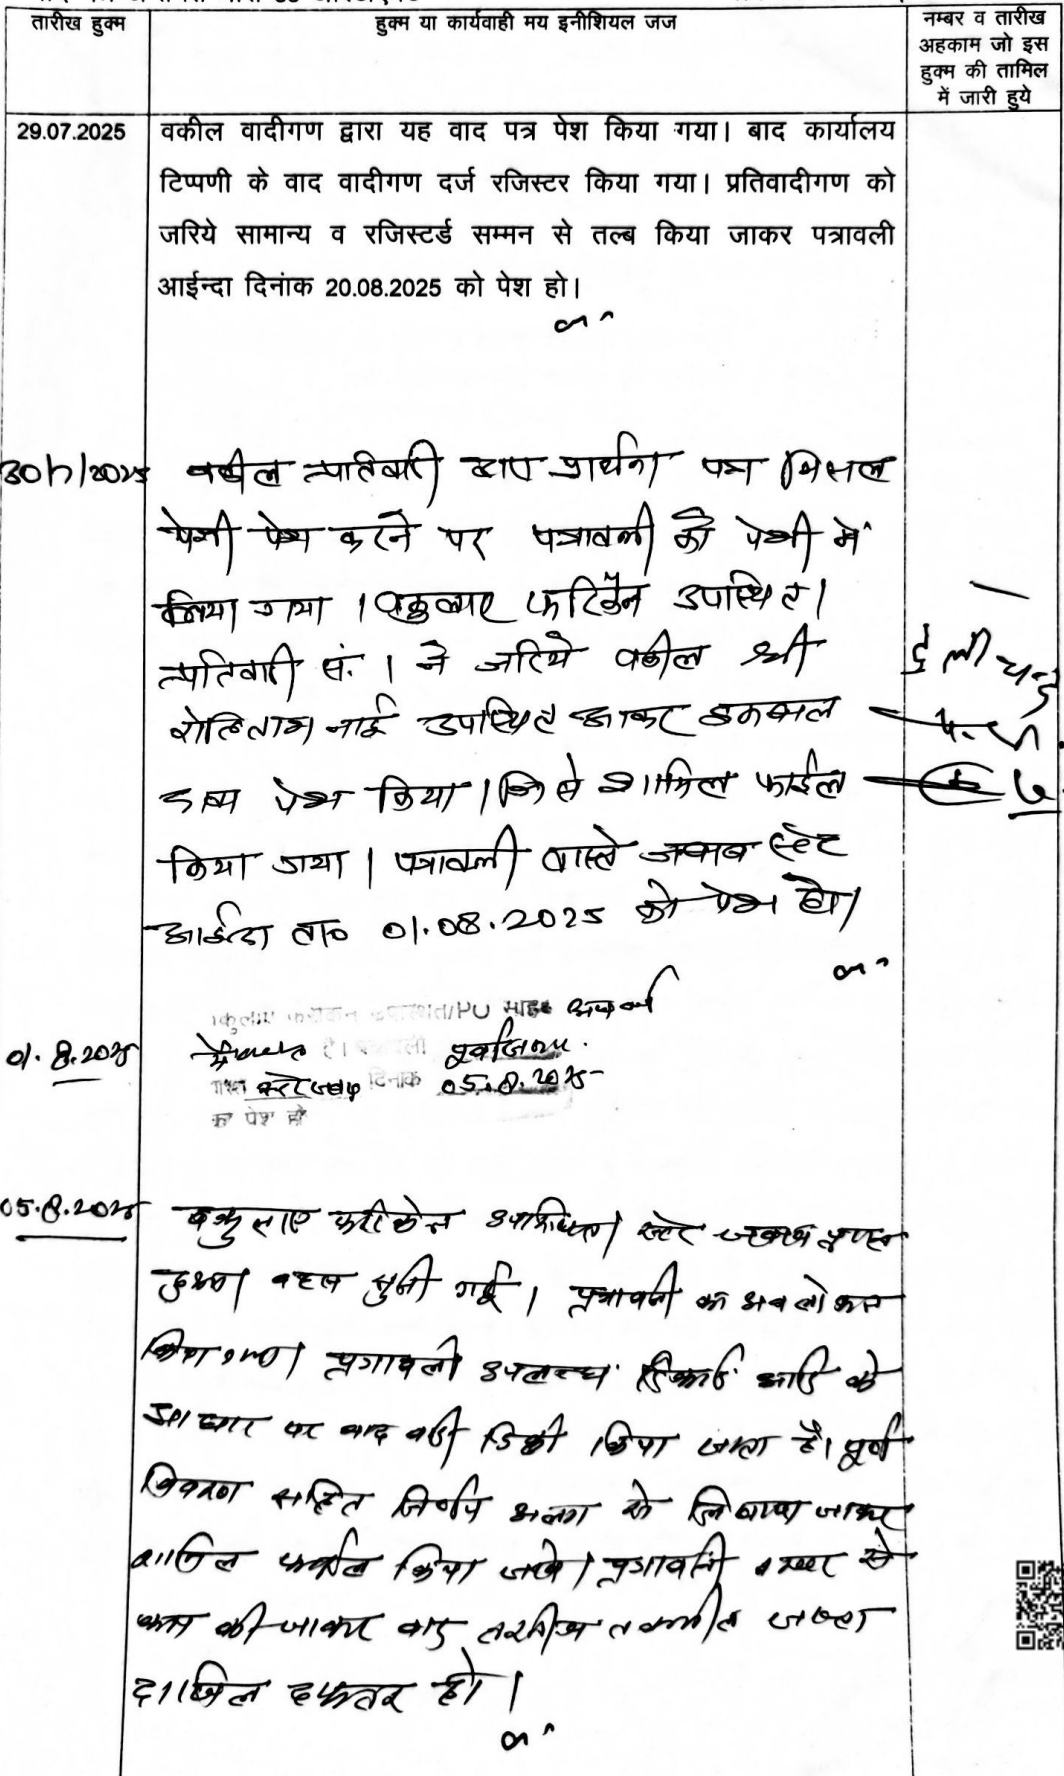 तारीख हुक्म
हुक्म या कार्यवाही मय इनीशियल जज
नम्बर व तारीख
अहकाम जो इस
हुक्म की तामिल
में जारी हुये
29.07.2025
वकील वादीगण द्वारा यह वाद पत्र पेश किया गया। बाद कार्यालय
टिप्पणी के वाद वादीगण दर्ज रजिस्टर किया गया। प्रतिवादीगण को
जरिये सामान्य व रजिस्टर्ड सम्मन से तल्ब किया जाकर पत्रावली
आईन्दा दिनांक 20.08.2025 को पेश हो।
30/7/2025
वकील प्रतिवादी द्वारा प्रार्थना पत्र मिसल
पेशी पेश करने पर पत्रावली को पेशी में
लिया गया । वकुलाए फरिकेन उपस्थित।
प्रतिवादी सं. 1 ने जरिये वकील श्री
रोहिताश नाई उपस्थित आकर इकबाल
पेश किया। जिसे शामिल फाईल
किया गया । पत्रावली वास्ते जवाब स्टेट
आईन्दा ता० 01.08.2025 को पेश हो।
01.8.2025
05.8.2025
का पेश हो
05.8.2025
वकुलाए फरीकेन उपस्थित। स्टेट जवाब प्राप्त
हुआ। बहस सुनी गई। पत्रावली का अवलोकन
किया गया। पत्रावली उपलब्ध रिकार्ड आदि के
आधार पर वाद वादी डिक्री किया जाता है। पूर्ण
विवरण सहित निर्णय अलग से लिखाया जाकर
शामिल फाईल किया जावे। पत्रावली नम्बर से
कम की जाकर बाद तकमील जाब्ता
दाखिल दफ्तर हो।